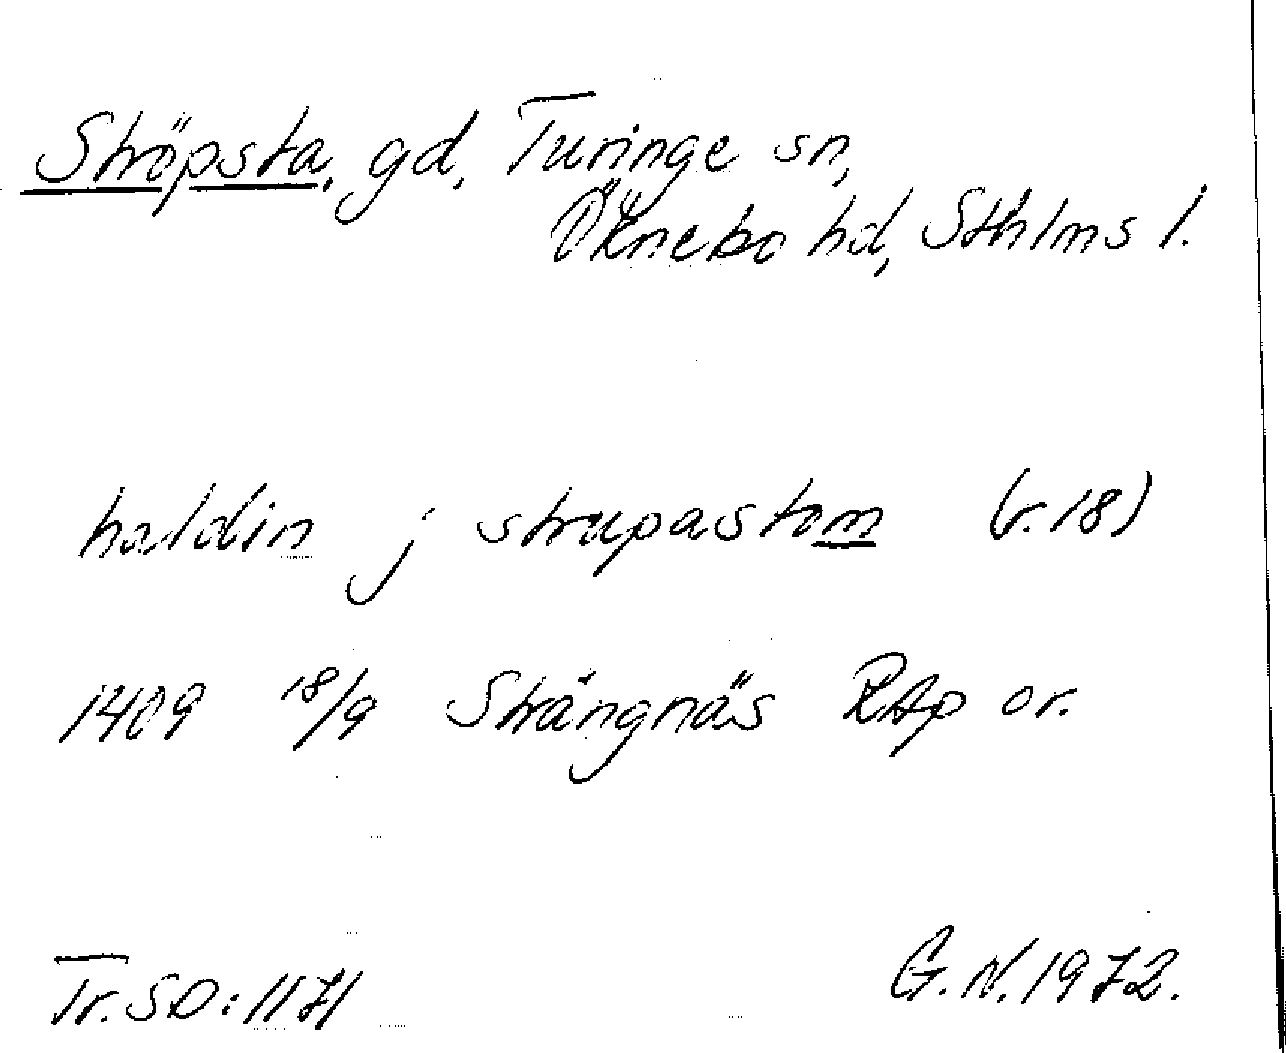 Ströpsta, gd, Turinge sn,
Öknebo hd, Sthlms l.
haldin j strupastom (r. 18)
1409 18/9 Strängnäs RAp or.
Tr. SD: 1171
G. N. 1972.